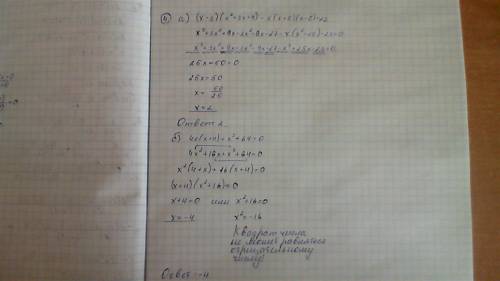 а) (x-3)(x²+3x+9) - x(x+5)(x-5)=23
x³+3x²+9x-3x²-9x-27-x(x²-25)-23=0
x³+3x²+9x-3x²-9x-27-x³+25x-23=0
25x-50=0
25x=50
x= 50/25
x=2
Ответ 2.
б) 4x(x+4)+x³+64=0
4x²+16x+x³+64=0
x²(4+x)+16(x+4)=0
(x+4)(x²+16)=0
x+4=0 или x²+16=0
x=-4 x²=-16
Квадрат числа
не может равняться
отрицательному
числу!
Ответ: -4